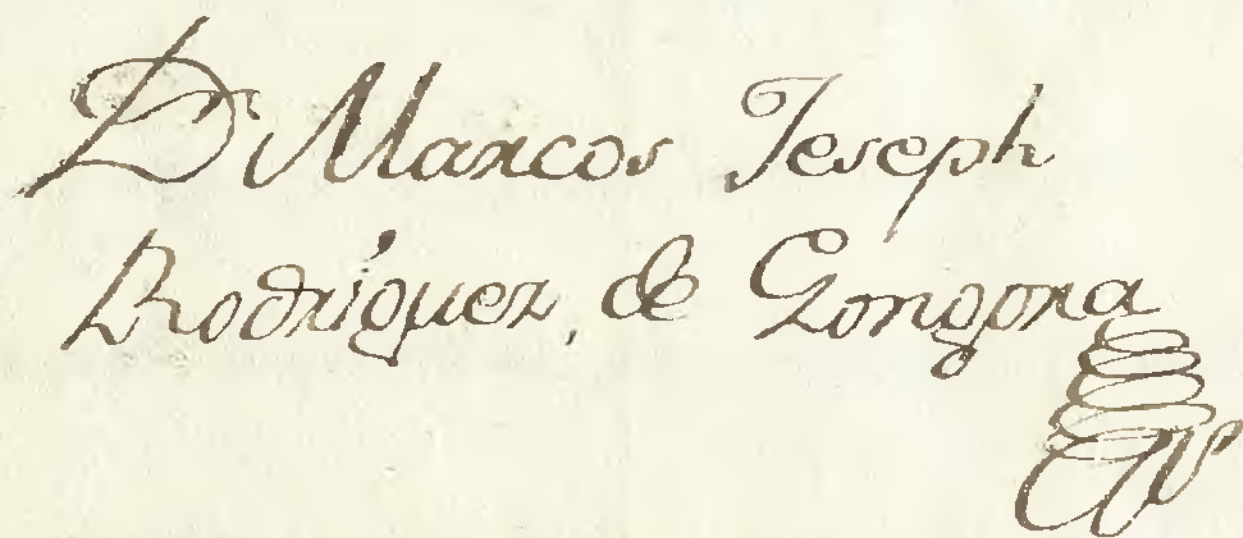 D Marcos Joseph
Rodriguez, de Gongora